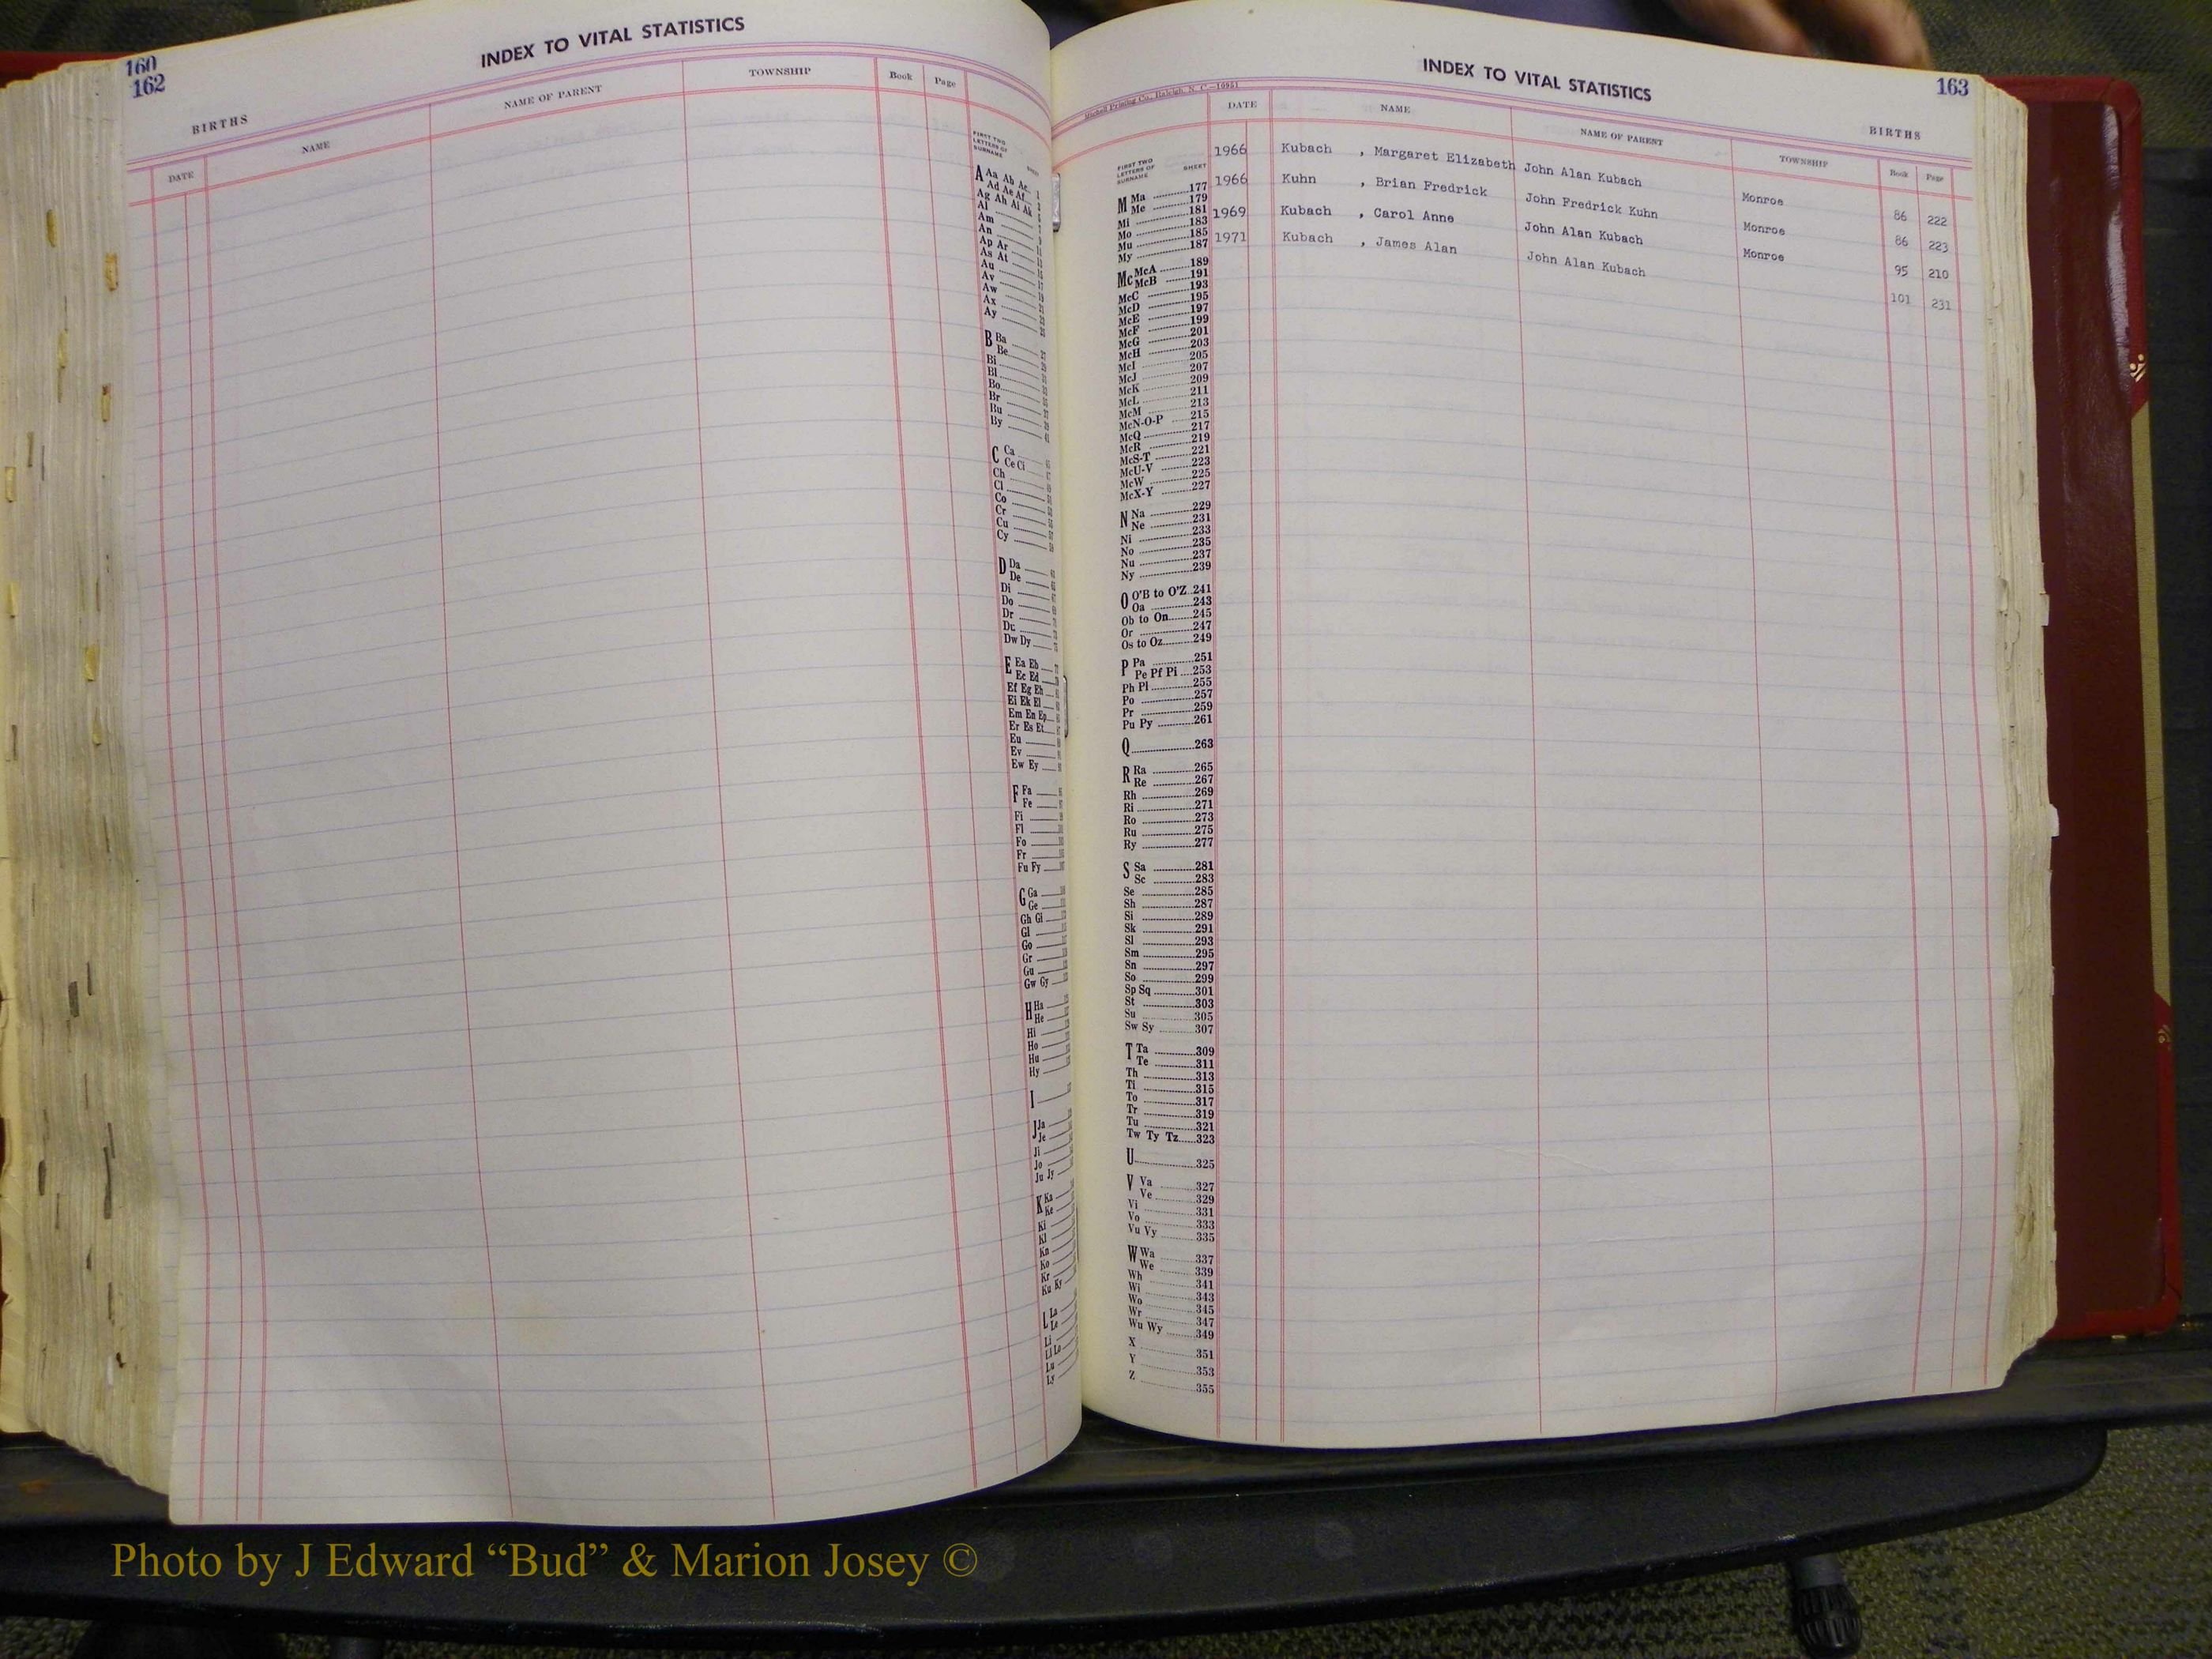 160
162
INDEX TO VITAL STATISTICS
BIRTHS
DATE NAME NAME OF PARENT TOWNSHIP Book Page
FIRST TWO
LETTERS OF
SURNAME
SHEET
A Aa Ab Ac
Ad Ae Af
Ag Ah Ai Ak
Al
Am
An
Ap Ar
As At
Au
Av
Aw
Ax
Ay
B Ba
Be
Bi
Bl
Bo
Br
Bu
By
C Ca
Ce Ci
Ch
Cl
Co
Cr
Cu
Cy
D Da
De
Di
Do
Dr
Du
Dw Dy
E Ea Eb
Ec Ed
Ef Eg Eh
Ei Ek El
Em En Ep
Er Es Et
Eu
Ev
Ew Ey
F Fa
Fe
Fi
Fl
Fo
Fr
Fu Fy
G Ga
Ge
Gh Gi
Gl
Go
Gr
Gu
Gw Gy
H Ha
He
Hi
Ho
Hu
Hy
I
J Ja
Je
Ji
Jo
Ju Jy
K Ka
Ke
Ki
Kl
Kn
Ko
Kr
Ku Ky
L La
Le
Li
Ll Lo
Lu
Ly
INDEX TO VITAL STATISTICS
163
Mitchell Printing Co., Raleigh, N. C.—10951
BIRTHS
DATE NAME NAME OF PARENT TOWNSHIP Book Page
1966 Kubach , Margaret Elizabeth John Alan Kubach Monroe 86 222
1966 Kuhn , Brian Fredrick John Fredrick Kuhn Monroe 86 223
1969 Kubach , Carol Anne John Alan Kubach Monroe 95 210
1971 Kubach , James Alan John Alan Kubach 101 231
FIRST TWO
LETTERS OF
SURNAME
SHEET
M Ma 177
Me 179
Mi 181
Mo 183
Mu 185
My 187
Mc McA 189
McB 191
McC 193
McD 195
McE 197
McF 199
McG 201
McH 203
McI 205
McJ 207
McK 209
McL 211
McM 213
McN-O-P 215
McQ 217
McR 219
McS-T 221
McU-V 223
McW 225
McX-Y 227
N Na 229
Ne 231
Ni 233
No 235
Nu 237
Ny 239
O O'B to O'Z 241
Oa 243
Ob to On 245
Or 247
Os to Oz 249
P Pa 251
Pe Pf Pi 253
Ph Pl 255
Po 257
Pr 259
Pu Py 261
Q 263
R Ra 265
Re 267
Rh 269
Ri 271
Ro 273
Ru 275
Ry 277
S Sa 281
Sc 283
Se 285
Sh 287
Si 289
Sk 291
Sl 293
Sm 295
Sn 297
So 299
Sp Sq 301
St 303
Su 305
Sw Sy 307
T Ta 309
Te 311
Th 313
Ti 315
To 317
Tr 319
Tu 321
Tw Ty Tz 323
U 325
V Va 327
Ve 329
Vi 331
Vo 333
Vu Vy 335
W Wa 337
We 339
Wh 341
Wi 343
Wo 345
Wr 347
Wu Wy 349
X 351
Y 353
Z 355
Photo by J Edward “Bud” & Marion Josey ©